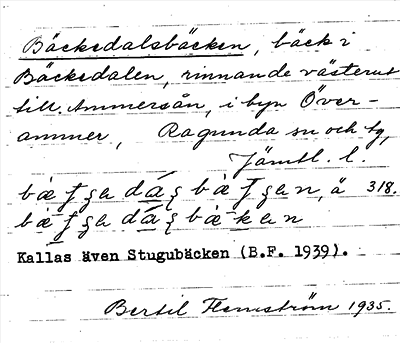 Bäckedalsbäcken, bäck i
Bäckedalen, rinnande västerut
till Ammersån, i byn Över-
ammer, Ragunda sn och tg,
Jämtl. l.
318.
Kallas även Stugubäcken (B.F. 1939).
Bertil Flemström 1935.